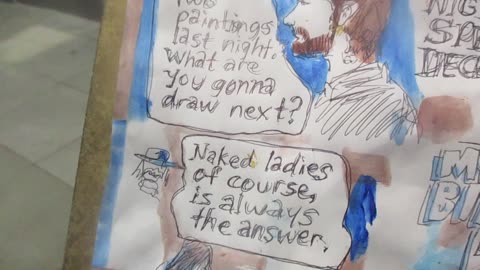 Two
paintings
last night.
What are
you gonna
draw next?
Naked ladies
of course,
is always
the answer.